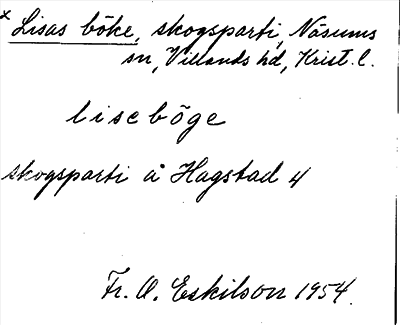 x Lisas böke, skogsparti, Näsums
sn, Villands hd, Krist. l.
lisebōge
skogsparti å Hagstad 4
Fr. O. Eskilson 1954.